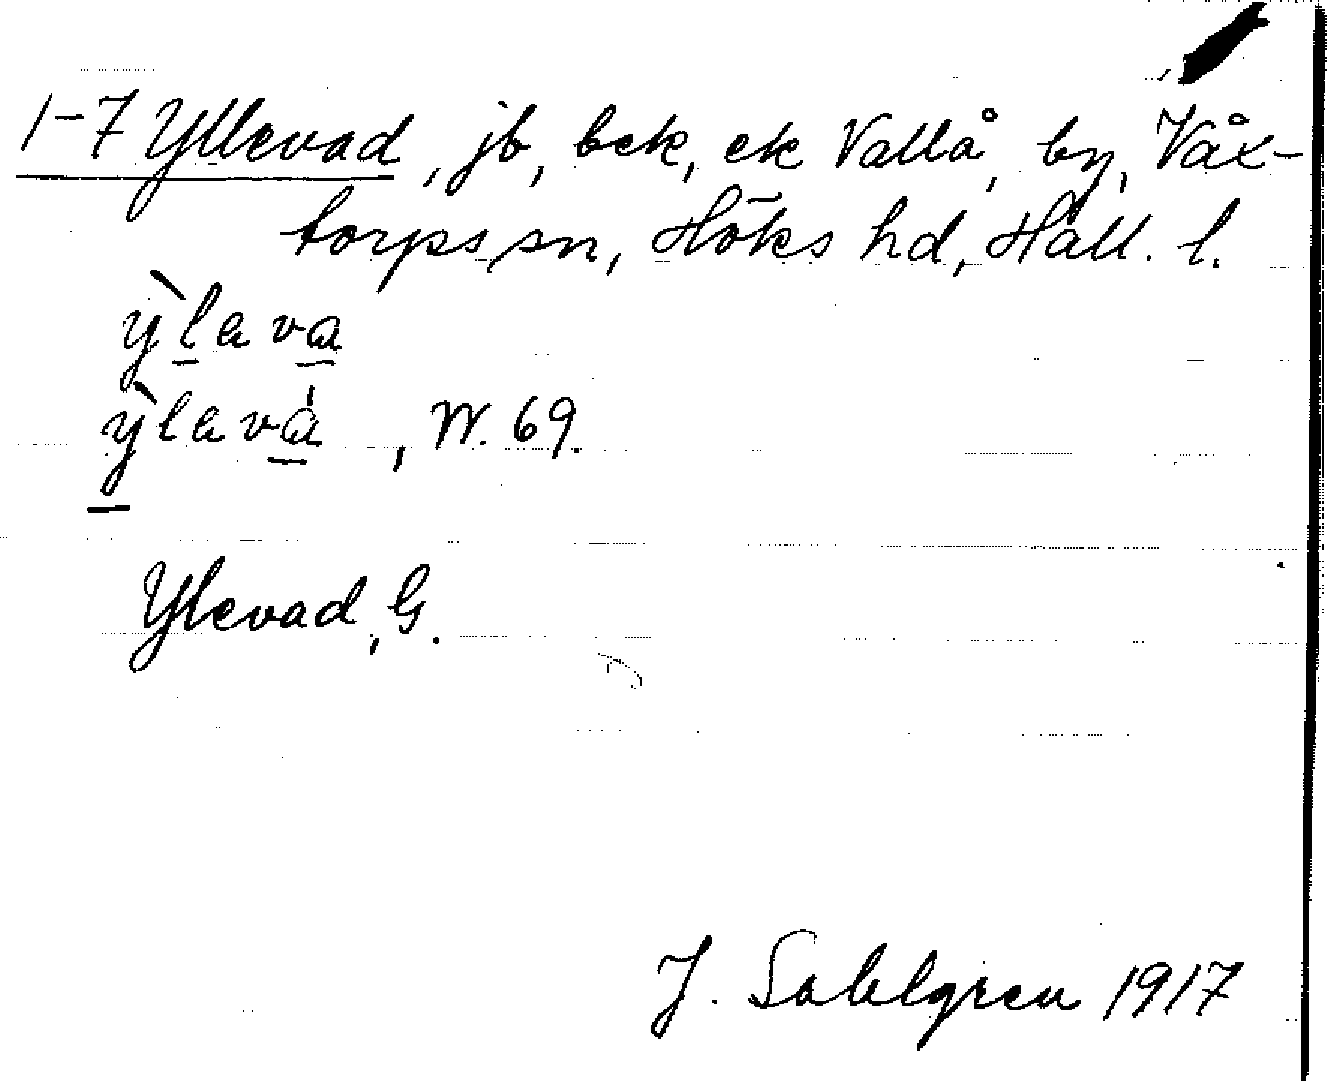 1-7 Yllevad, jb, bek, ek Vallå, by, Våx-
torps sn, Höks hd, Hall. l.
ỳlava
ỳlavà, W. 69.
Ylevad, G.
J. Sahlgren 1917